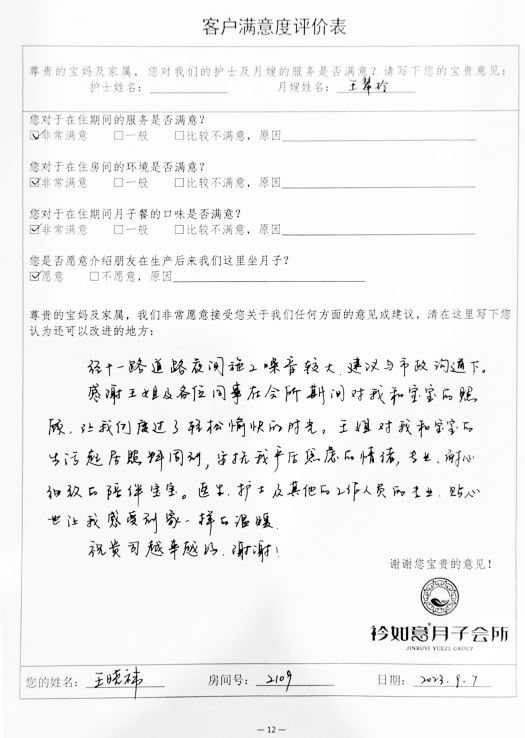 客户满意度评价表
尊贵的宝妈及家属，您对我们的护士及月嫂的服务是否满意？请写下您的宝贵意见：
护士姓名： 月嫂姓名：王翠玲
您对于在住期间的服务是否满意？
☑非常满意 □一般 □比较不满意，原因
您对于在住房间的环境是否满意？
☑非常满意 □一般 □比较不满意，原因
您对于在住期间月子餐的口味是否满意？
☑非常满意 □一般 □比较不满意，原因
您是否愿意介绍朋友在生产后来我们这里坐月子？
☑愿意 □不愿意，原因
尊贵的宝妈及家属，我们非常愿意接受您关于我们任何方面的意见或建议，请在这里写下您
认为还可以改进的地方：
经十一路道路夜间施工噪音较大，建议与市政沟通下。
感谢王姐及各位同事在会所期间对我和宝宝的照
顾，让我们度过了轻松愉快的时光，王姐对我和宝宝的
生活起居照料周到，安抚我产后焦虑的情绪，专业、耐心
细致的陪伴宝宝。医生、护士及其他的工作人员的专业、贴心
也让我感受到家一样的温暖。
祝贵司越来越好，谢谢！
谢谢您宝贵的意见！
衿如意月子会所
JINRUYI YUEZI GROUP
您的姓名：王晓祎 房间号：2109 日期：2023.9.7
— 12 —